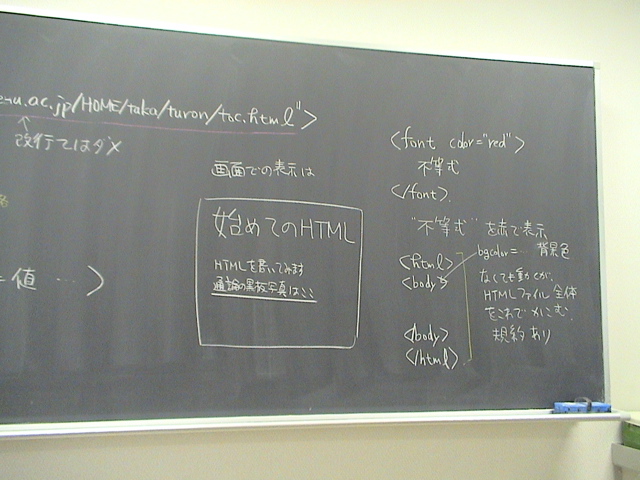 u.ac.jp/HOME/taka/turon/toc.html">
改行てはダメ
= 値 … >
画面での表示は
始めてのHTML
HTMLを書いてみます
通論の黒板写真はここ
<font color="red">
不等式
</font>.
"不等式" を赤で表示
bgcolor=… 背景色
<html>
<body>
</body>
</html>
なくても動くが、
HTMLファイル全体
をこれでかこむ.
規約あり